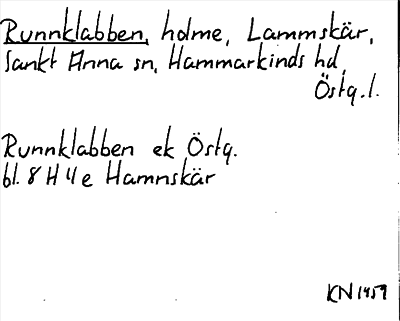 Runnklabben, holme, Lammskär,
Sankt Anna sn, Hammarkinds hd,
Östg.l.
Runnklabben ek Östg.
bl. 8 H 4e Hamnskär
KN 1959